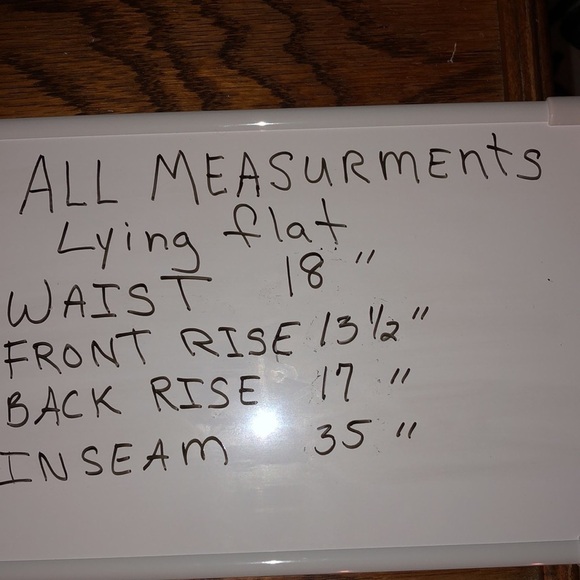 ALL MEASURMENTS
Lying flat
WAIST 18"
FRONT RISE 13 1/2"
BACK RISE 17"
INSEAM 35"